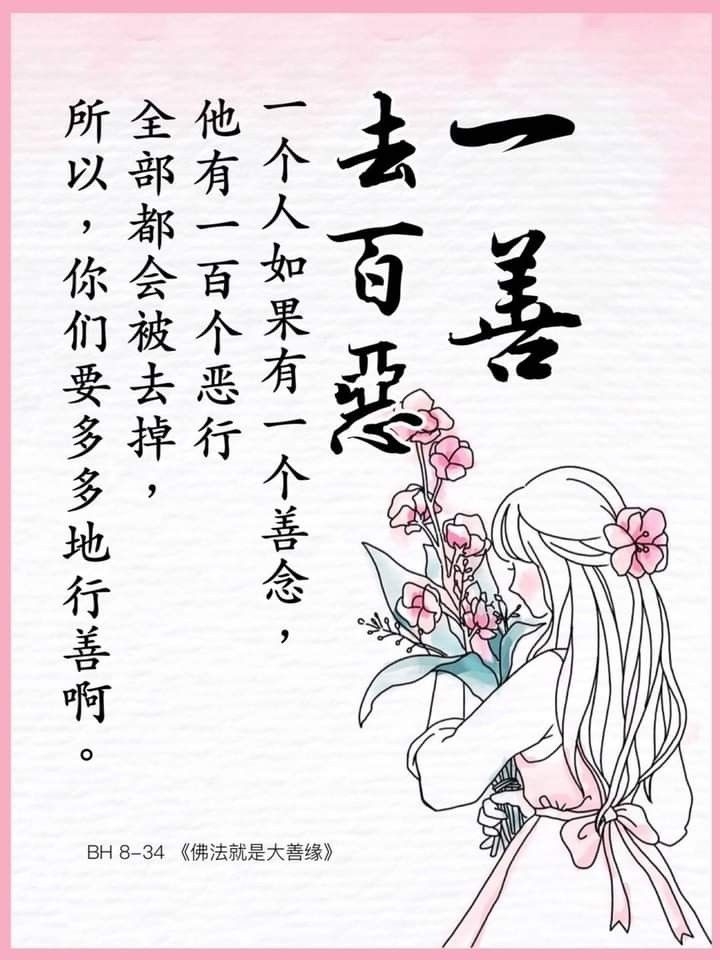 一善
去百惡
一个人如果有一个善念，
他有一百个恶行
全部都会被去掉，
所以，你们要多多地行善啊。
BH 8-34 《佛法就是大善缘》